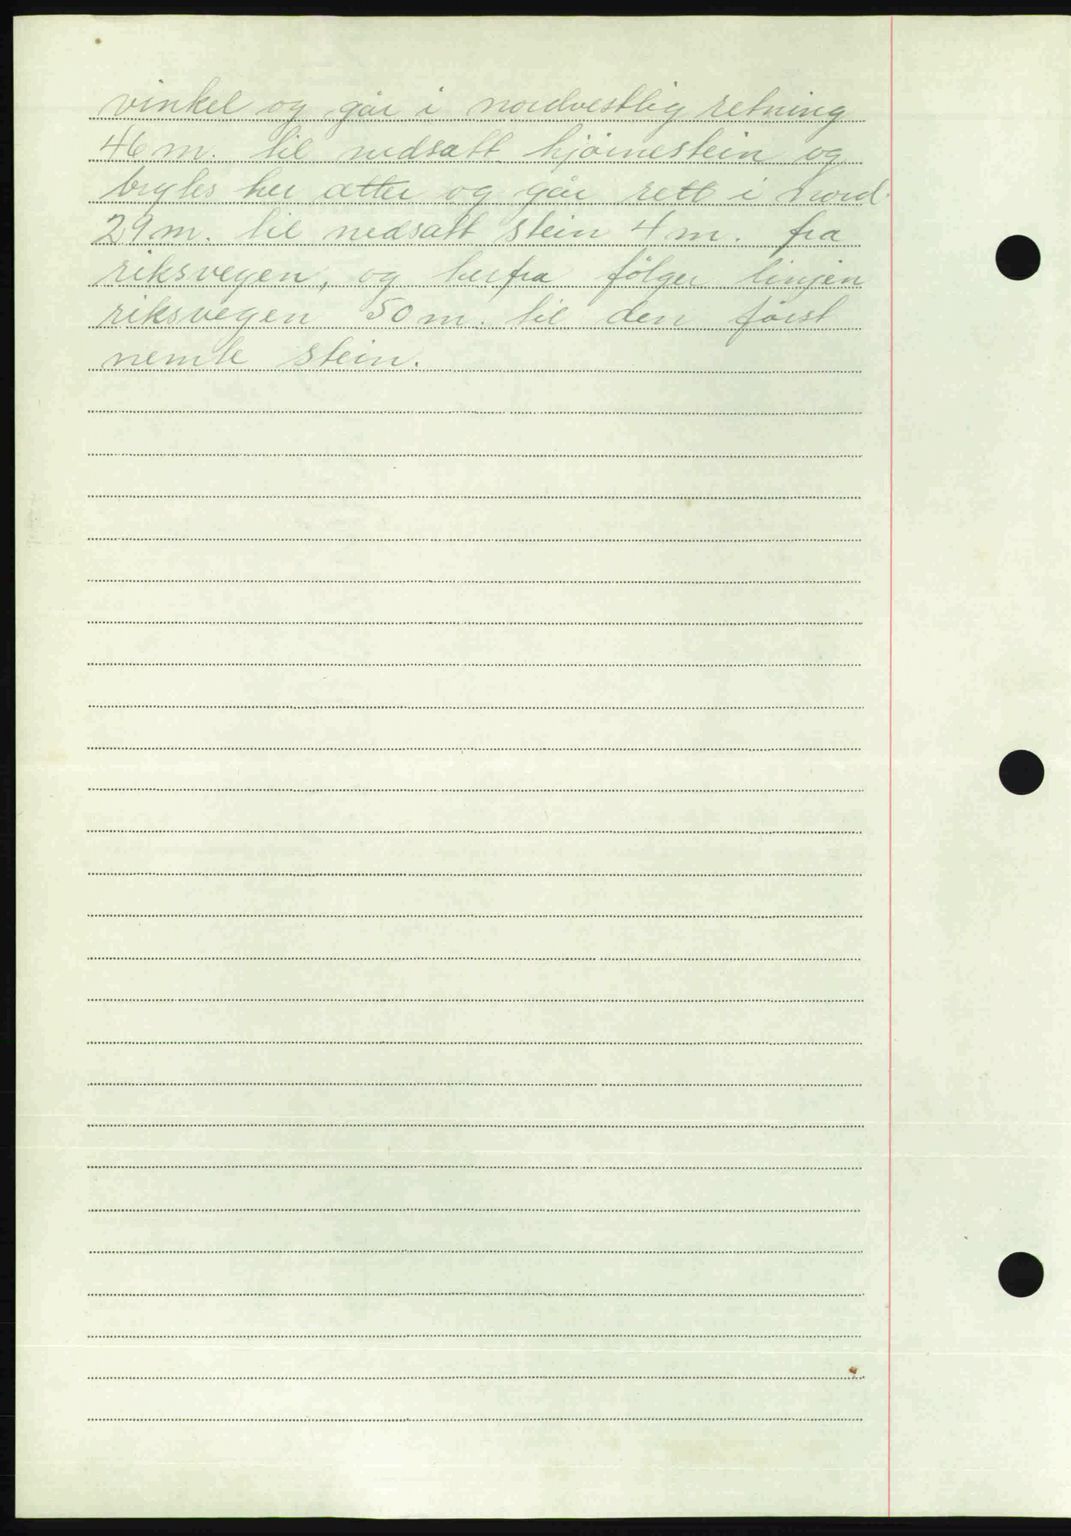 vinkel og går i nordvestlig retning
46 m. til nedsatt hjørnestein og
brytes her atter og går rett i nord
29 m. til nedsatt stein 4 m. fra
riksvegen, og herfra følger linjen
riksvegen 50 m. til den først
nemte stein.